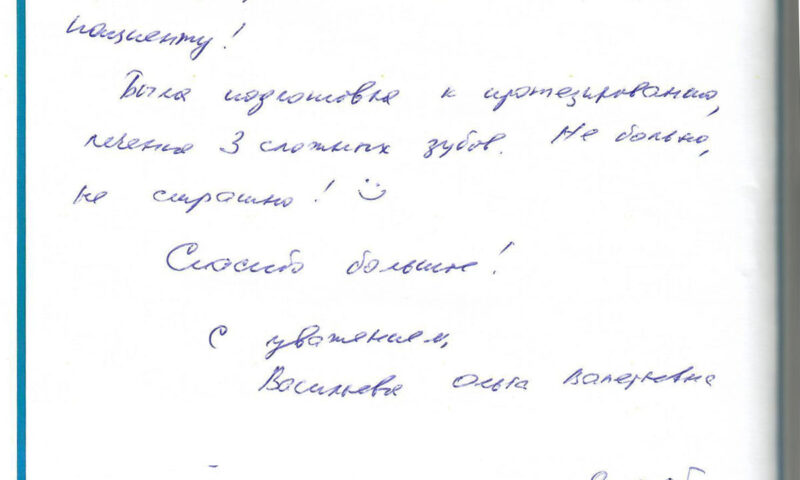 пациенту!
Была подготовка к протезированию,
лечение 3 сложных зубов. Не больно,
не страшно! :)
Спасибо большое!
С уважением,
Васильева Ольга Валерьевна